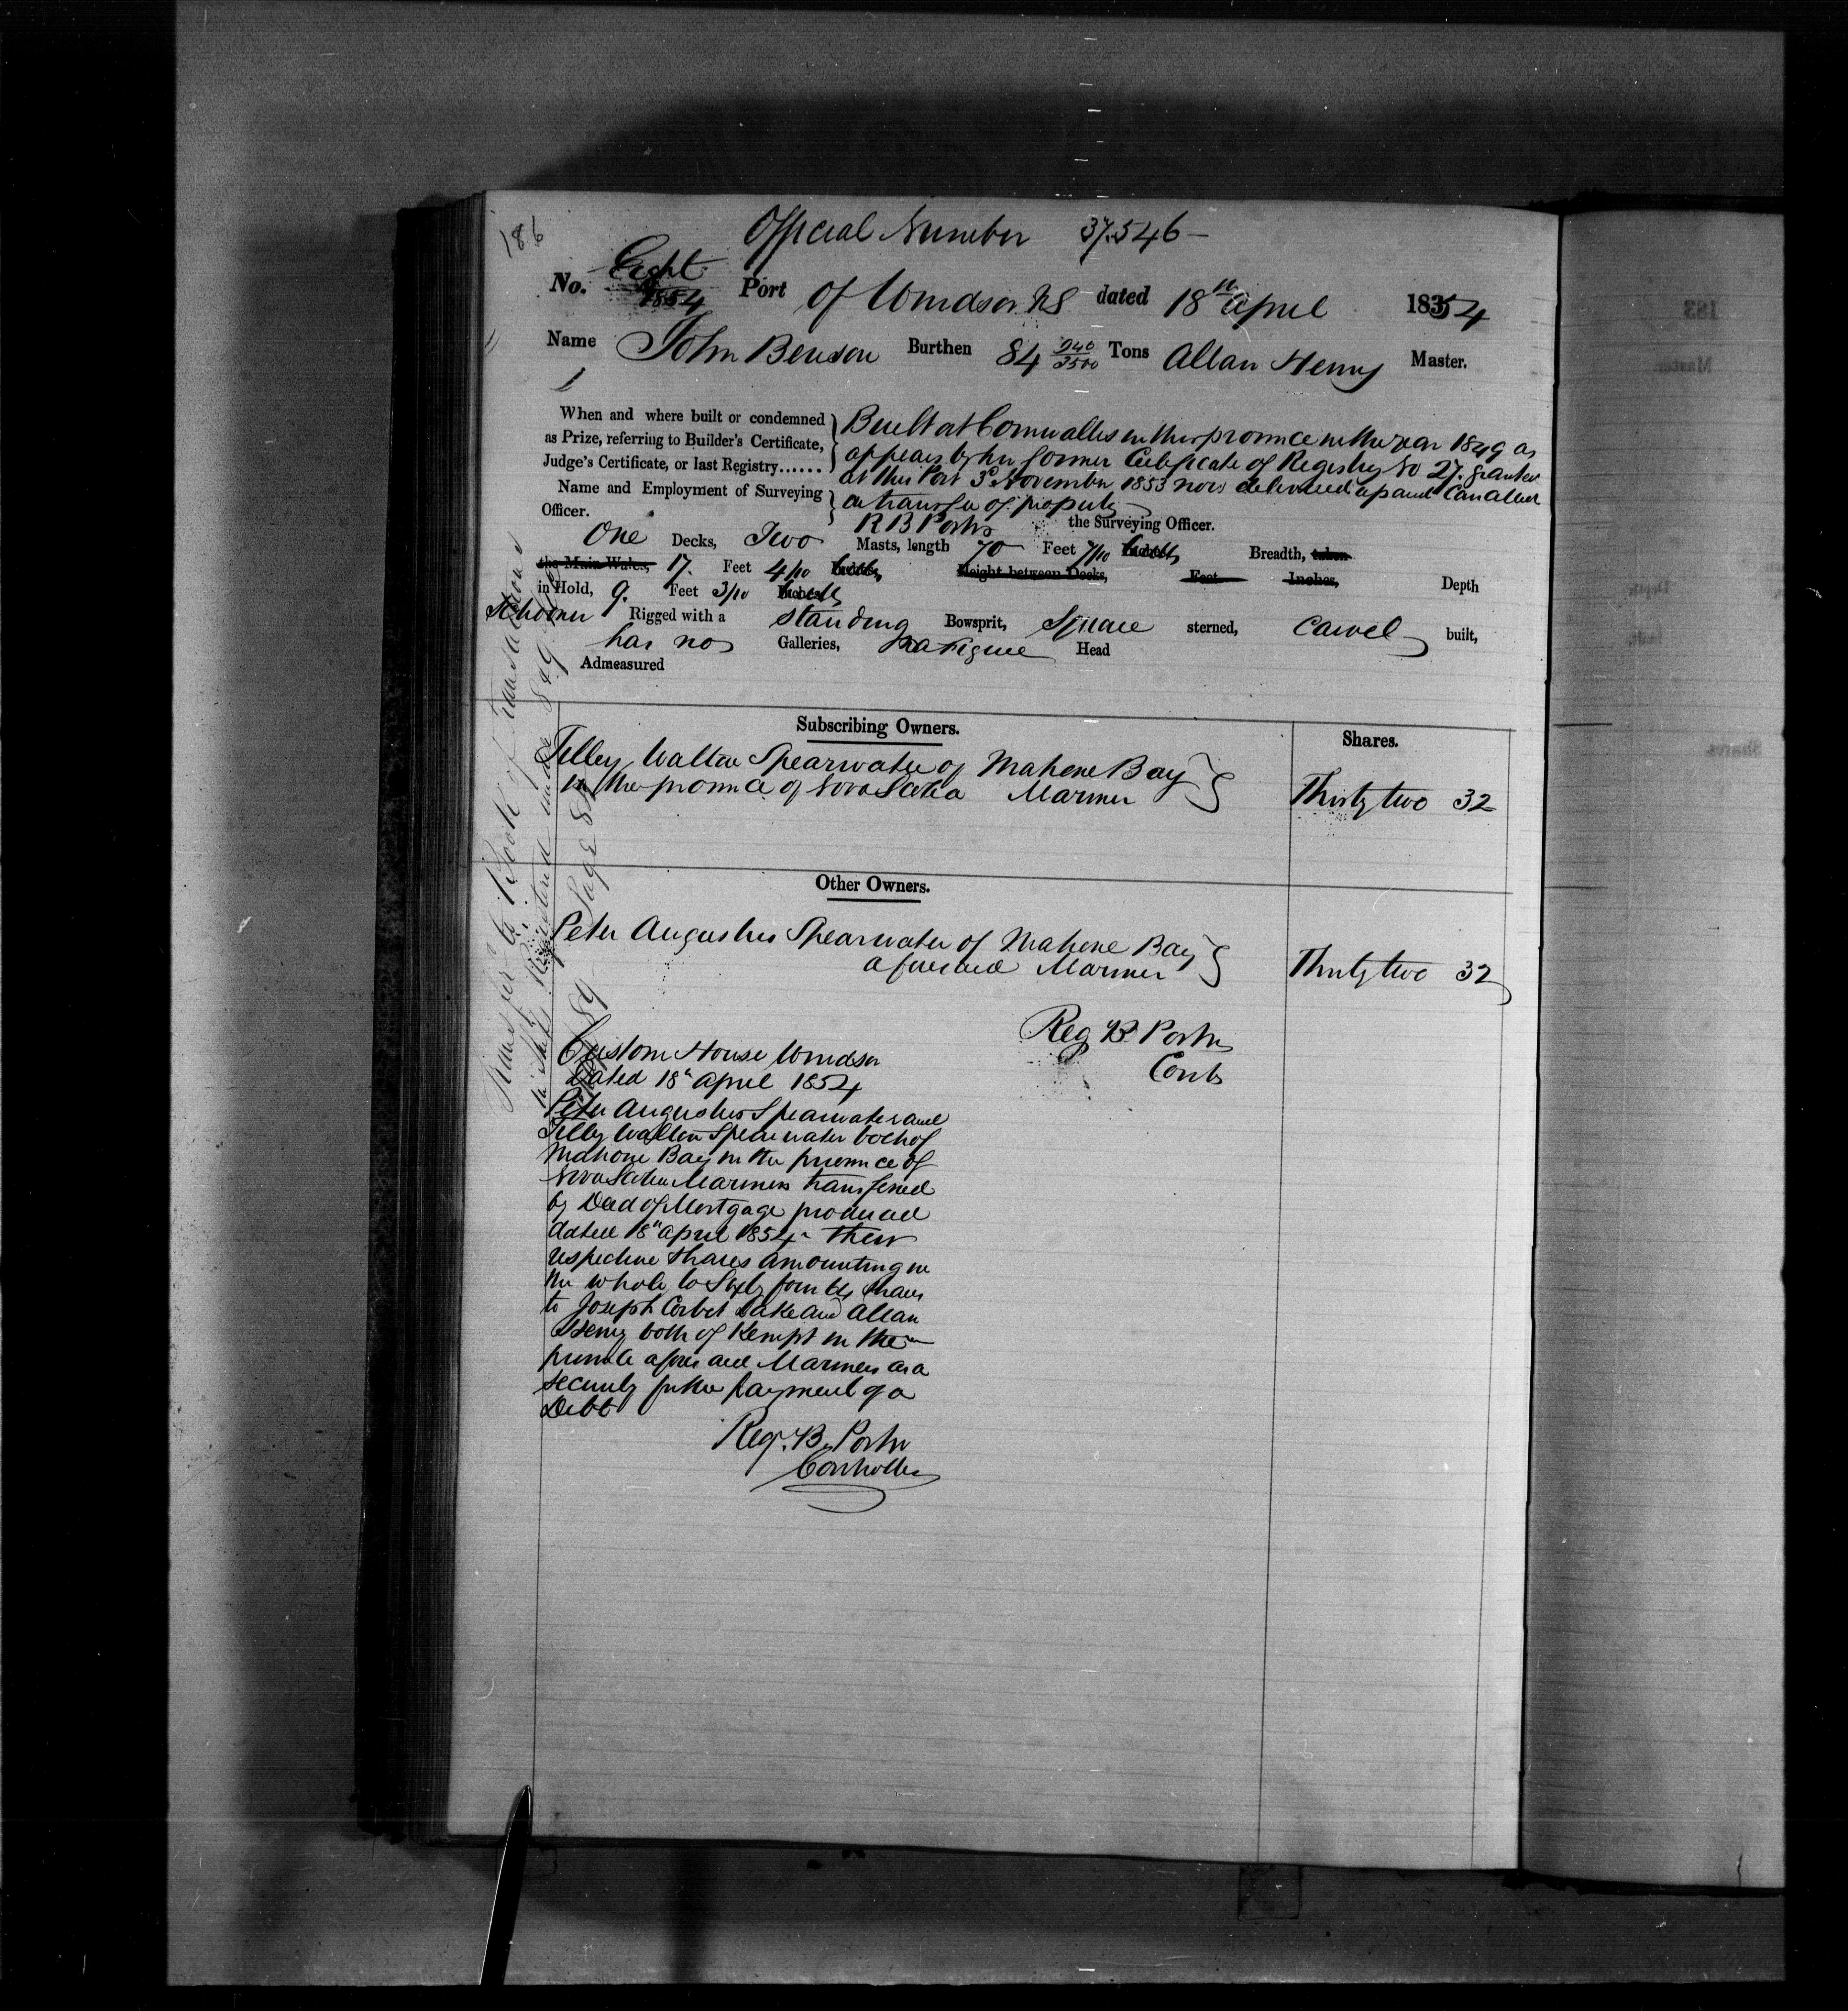 186
Official Number 37.546 –
No. Eight 1854 Port of Windsor NS dated 18th April 1854
Name John Benson Burthen 84 940/3500 Tons Allan Henry Master.
When and where built or condemned as Prize, referring to Builder's Certificate, Judge's Certificate, or last Registry......
Built at Cornwallis in this province in the year 1849 as
appears by her former Certificate of Registry No 27. granted
at this Port 3d November 1853 now delivered up and Cancelled
a transfer of property
Name and Employment of Surveying Officer.
R B Porter the Surveying Officer.
One Decks, Two Masts, length 70 Feet 7/10 Inches, Breadth, taken
the Main Wales, 17. Feet 4/10 Height between Decks, Feet Inches, Depth
in Hold, 9. Feet 3/10
Schooner Rigged with a standing Bowsprit, Square sterned, Carvel built,
has no Galleries, Figure Head
Admeasured
Subscribing Owners.
Shares.
Tilley Walton Spearwater of Mahone Bay
in the province of Nova Scotia Mariner
Thirty two 32
Other Owners.
Peter Augustus Spearwater of Mahone Bay
aforesaid Mariner
Thirty two 32
Reg B Porter
Contr
Custom House Windsor
Dated 18th April 1854
Peter Augustus Spearwater and
Tilley Walton Spearwater both of
Mahone Bay in the province of
Nova Scotia Mariners transfered
by Deed of Mortgage produced
dated 18th April 1854 – their
respective shares amounting in
the whole to Sixty four shares
to Joseph Corbet Lake and Allan
Henry both of Kempt in the
province aforesaid Mariners as a
security for the payment of a
Debt
Reg. B. Porter
Controller
Transfer to Book of Transactions
Registered
Page
183
Master.
Depth
built,
Shares.